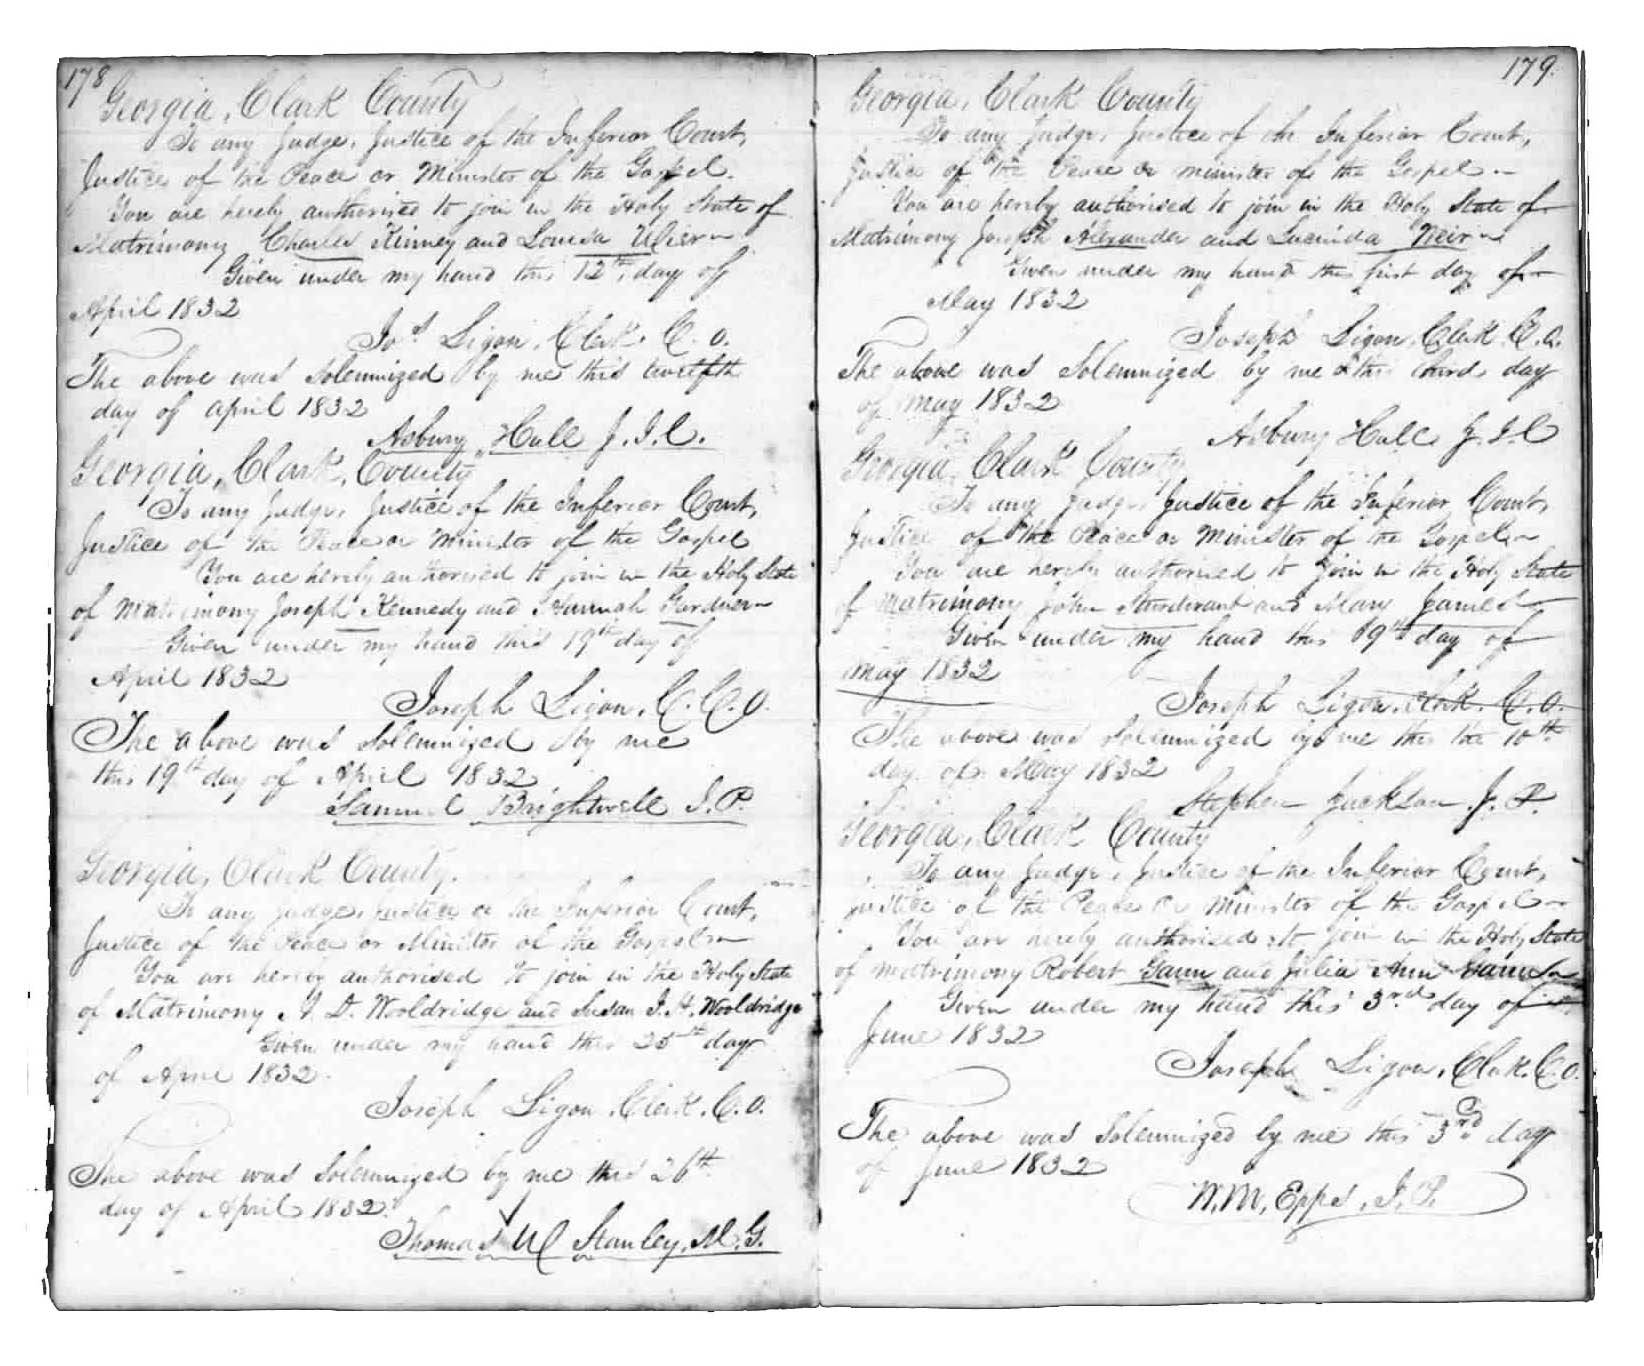 178
Georgia, Clark County
To any Judge, Justice of the Inferior Court,
Justice of the Peace or Minister of the Gospel.
You are hereby authorised to join in the Holy State of
Matrimony Charles Kinney and Louisa
Given under my hand this 12th day of
April 1832
Jos. Ligon, Clerk. C. O.
The above was solemnized by me this twelfth
day of april 1832
Asbury Hull J.I.C.
Georgia, Clark, County
To any Judge, Justice of the Inferior Court,
Justice of the Peace or Minister of the Gospel
You are hereby authorised to join in the Holy State
of Matrimony Joseph Kennedy and Hannah Gardner
Given under my hand this 19th day of
April 1832
Joseph Ligon, C. C. O.
The above was solemnized by me
this 19th day of April 1832
Samuel Brightwell J.P.
Georgia, Clark County.
To any Judge, Justice of the Inferior Court,
Justice of the Peace or Minister of the Gospel
You are hereby authorised to join in the Holy State
of Matrimony A. D. Wooldridge and Susan J. H. Wooldridge
Given under my hand this 25th day
of April 1832.
Joseph Ligon, Clerk, C.O.
The above was solemnized by me this 26th
day of April 1832.
Thomas W Stanley, M.G.
179.
Georgia, Clark County
To any Judge, Justice of the Inferior Court,
Justice of the Peace or minister of the Gospel
You are hereby authorised to join in the Holy State of
Matrimony Joseph Alexander and Lucinda Weir
Given under my hand this first day of
May 1832
Joseph Ligon, Clerk C.O.
The above was Solemnized by me this third day
of May 1832
Asbury Hull J.I.C
Georgia, Clark County
To any Judge, Justice of the Inferior Court,
Justice of the Peace or Minister of the Gospel
You are hereby authorised to join in the Holy State
of Matrimony John Sturdivant and Mary James
Given under my hand this 9th day of
May 1832
Joseph Ligon, Clerk. C.O.
The above was solemnized by me this the 10th
day of May 1832
Stephen Jackson J.P.
Georgia, Clark County
To any Judge, Justice of the Inferior Court,
Justice of the Peace or Minister of the Gospel
You are hereby authorised to join in the Holy State
of Matrimony Robert Gann and Julia Ann
Given under my hand this 3rd day of
June 1832
Joseph Ligon, Clerk. C.O.
The above was Solemnized by me this 3rd day
of June 1832
W.M. Epps, J.P.